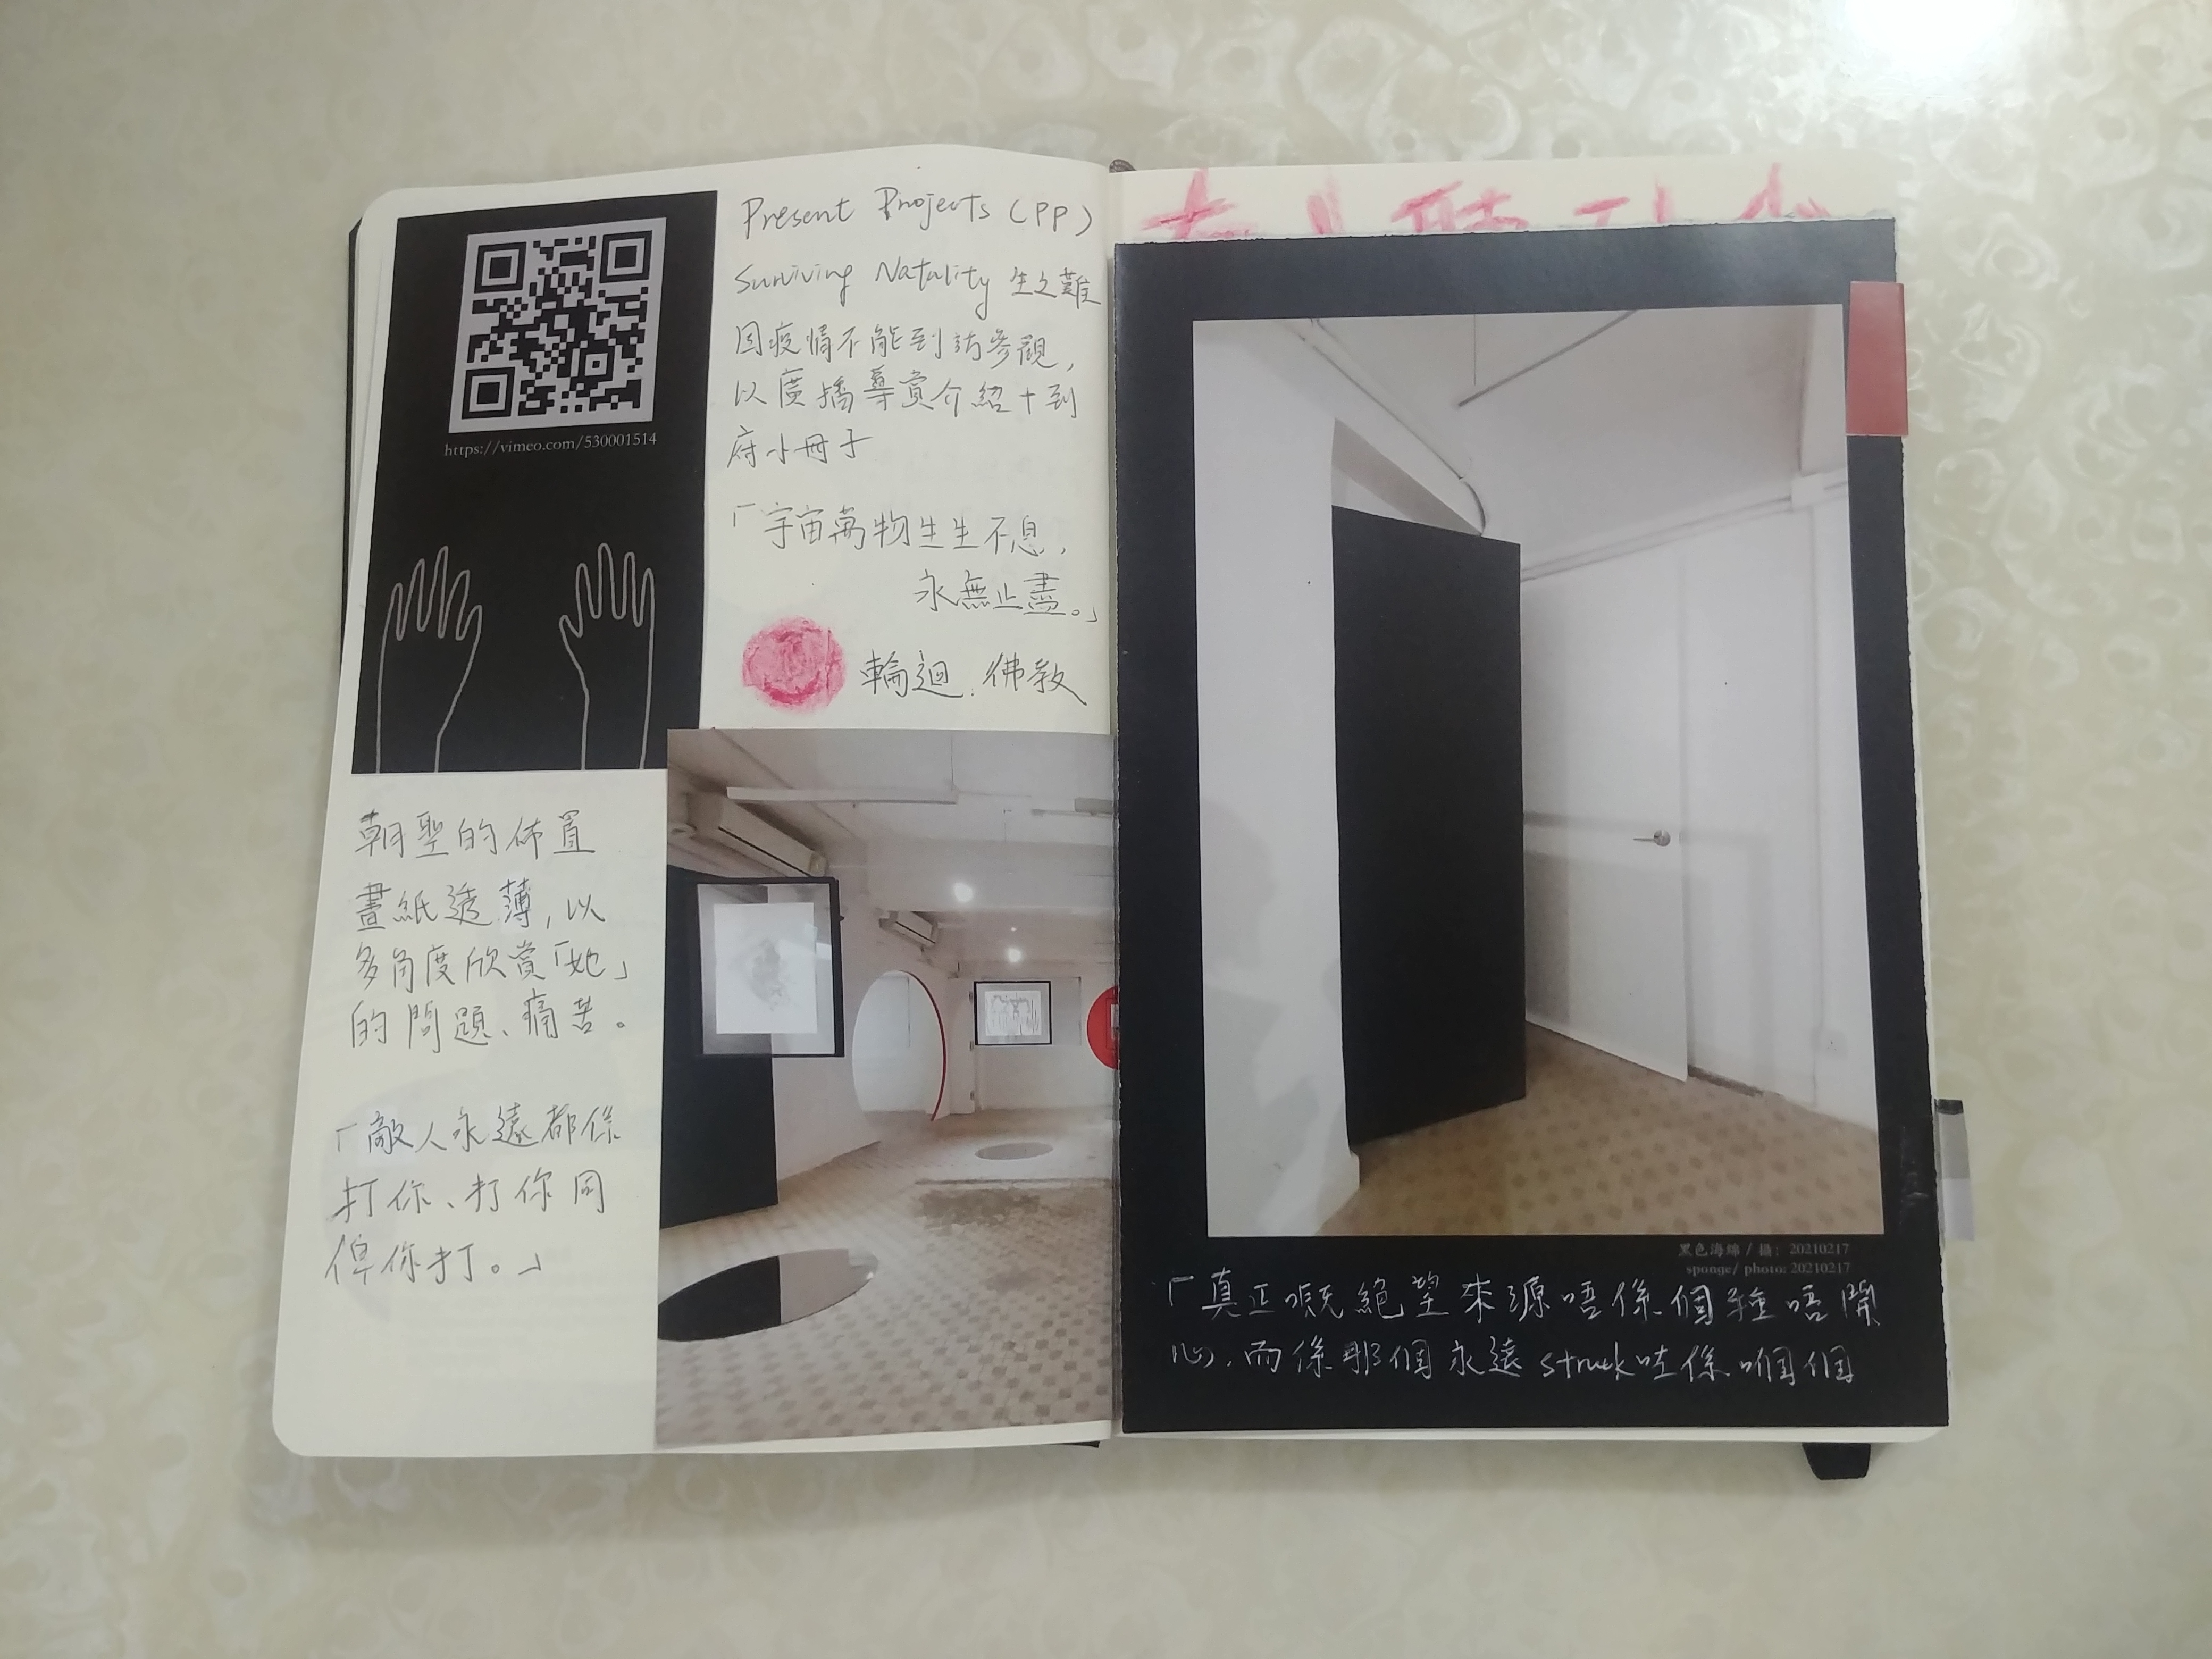 https://vimeo.com/530001514
Present Projects (PP)
Surviving Natality 生之難
因疫情不能到訪參觀,
以廣播導賞介紹+到
府小冊子
「宇宙萬物生生不息,
永無止盡。」
輪迴、佛教
朝聖的佈置
畫紙透薄,以
多角度欣賞「她」
的問題、痛苦。
「敵人永遠都係
打你、打你同
俾你打。」
黑色海綿 / 攝: 20210217
sponge/ photo: 20210217
「真正嘅絕望來源唔係個種唔開
心,而係那個永遠struck咗係嗰個